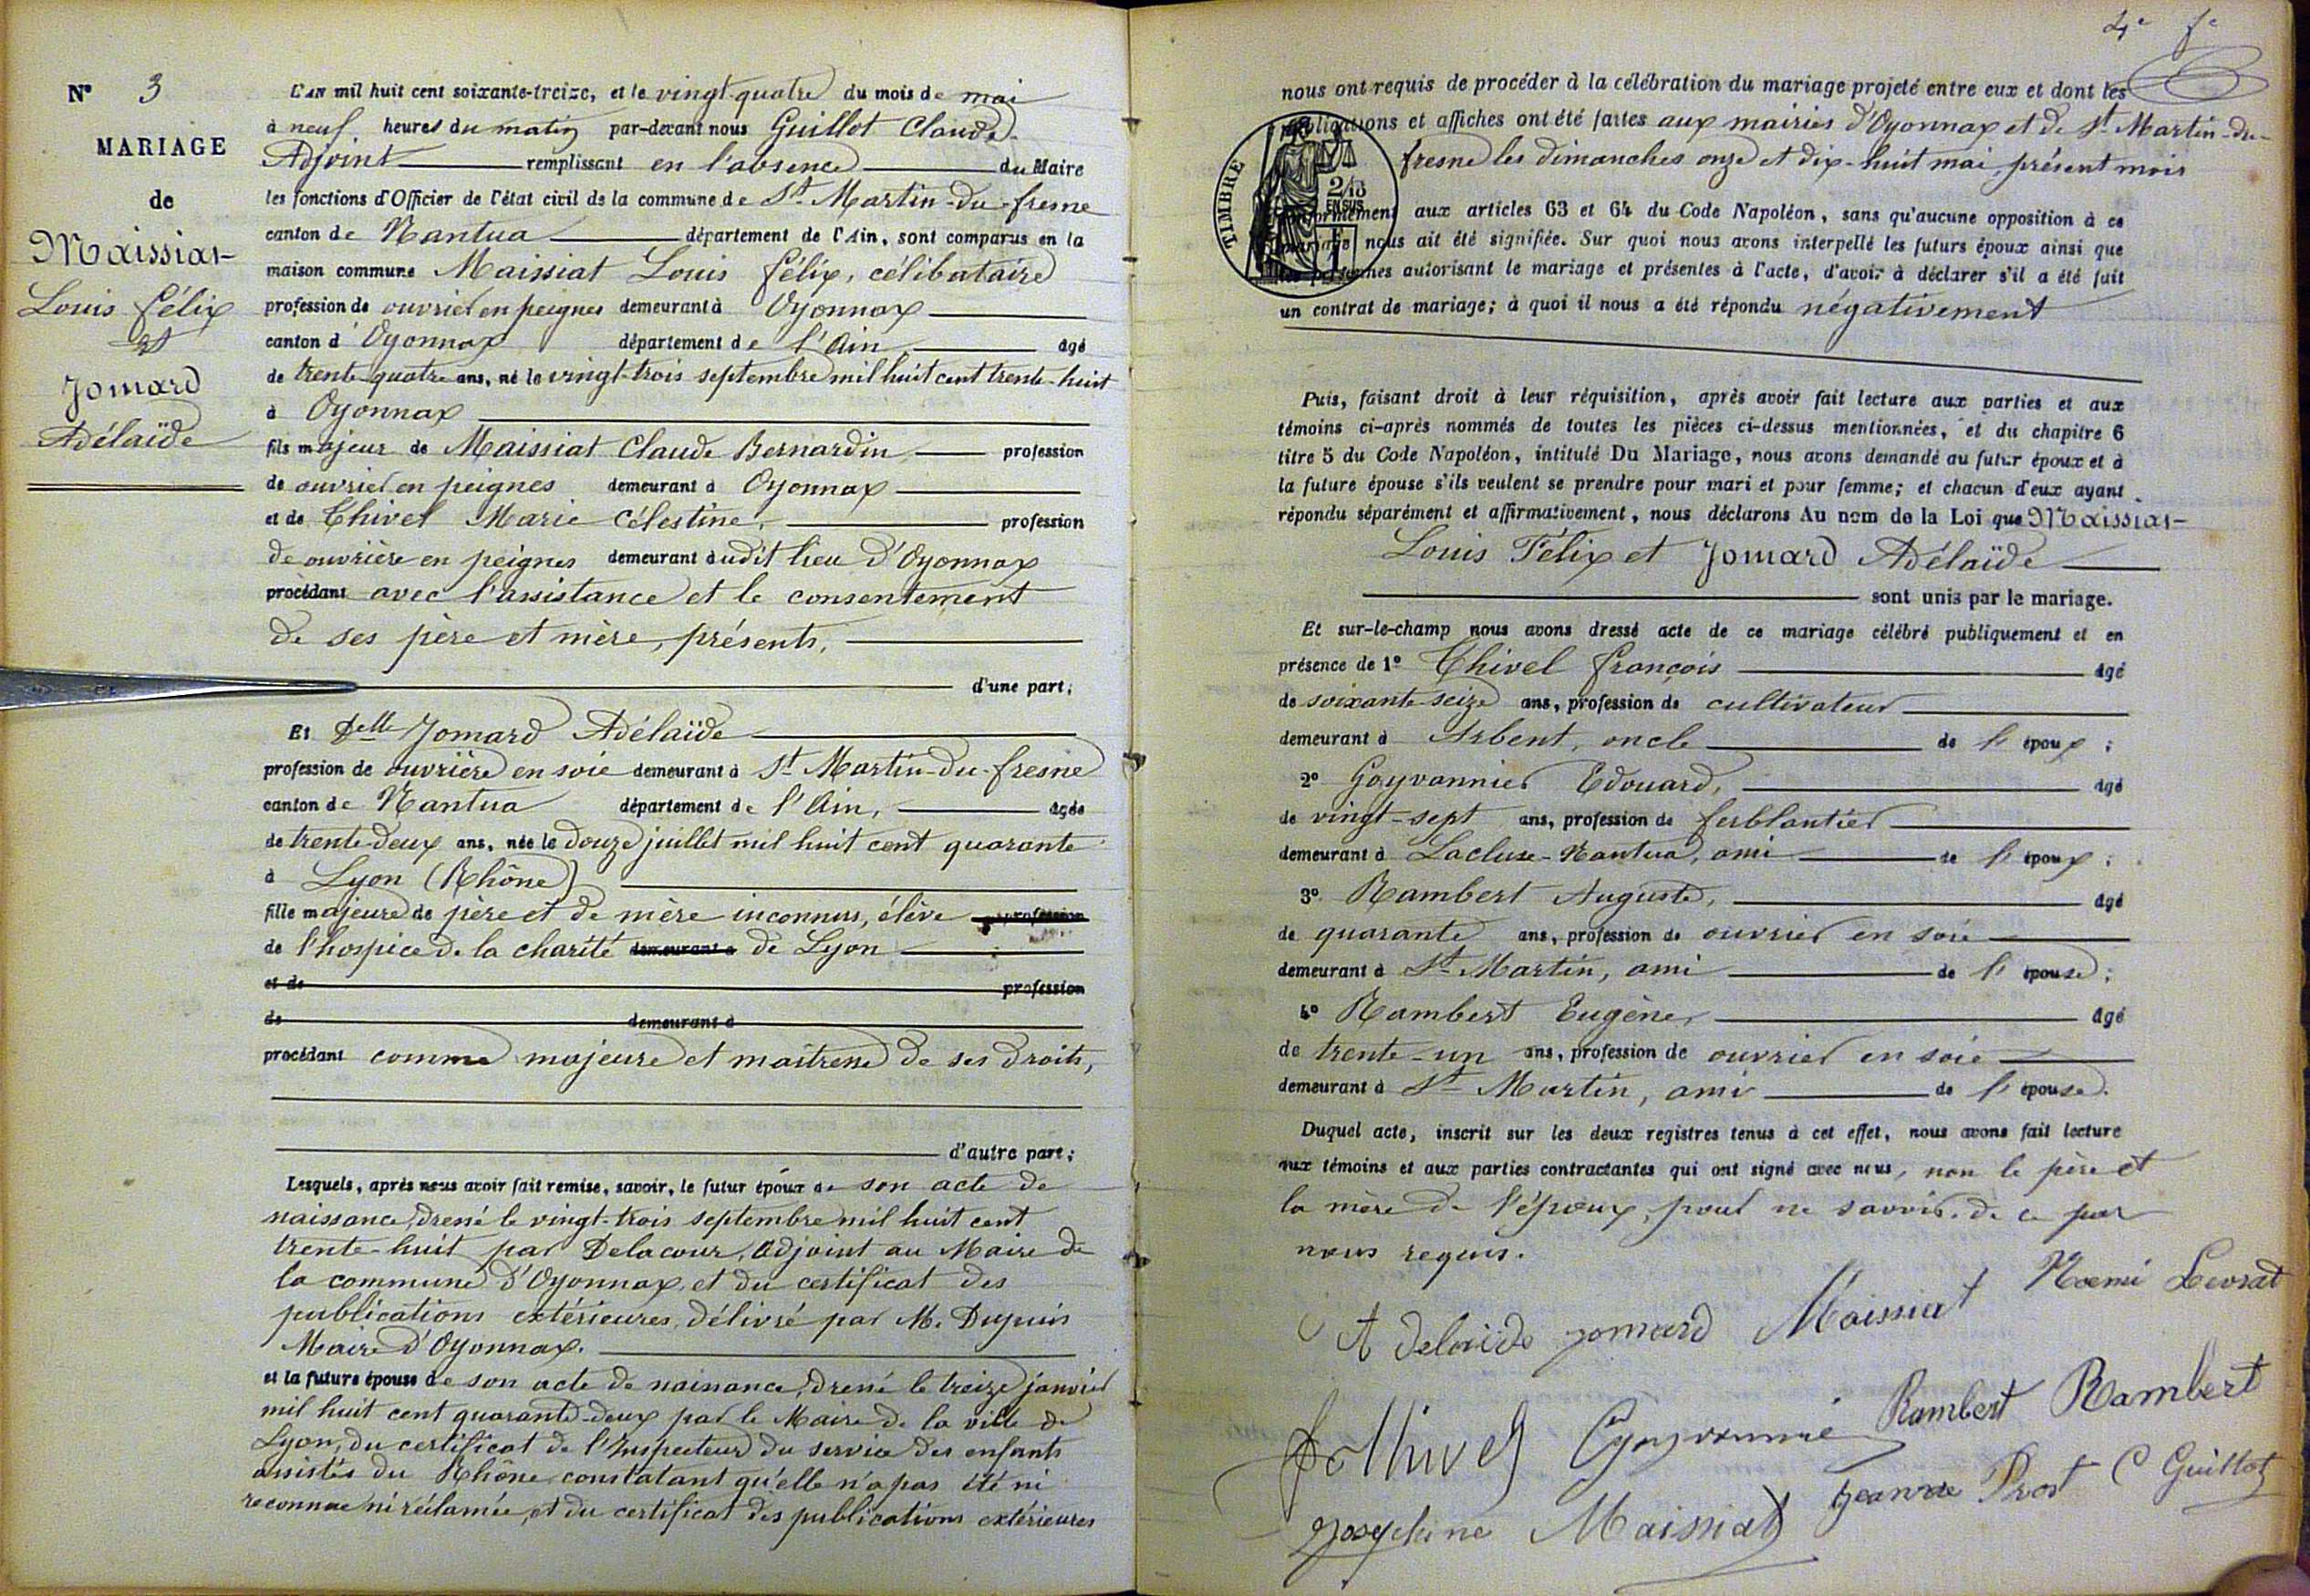 N° 3
MARIAGE
de
Maissiat
Louis Félix
et
Jomard
Adélaïde
L'AN mil huit cent soixante-treize, et le vingt-quatre du mois de mai
à neuf heures du matin par-devant nous Guillot Claude
Adjoint remplissant en l'absence du Maire
les fonctions d'Officier de l'état civil de la commune de St Martin-du-fresne
canton de Nantua département de l'Ain, sont comparus en la
maison commune Maissiat Louis félix, célibataire
profession de ouvrier en peignes demeurant à Oyonnax
canton d'Oyonnax département de l'Ain, âgé
de trente-quatre ans, né le vingt-trois septembre mil huit cent trente-huit
à Oyonnax
fils majeur de Maissiat Claude Bernardin profession
de ouvrier en peignes demeurant à Oyonnax
et de Thivel Marie Célestine, profession
de ouvrière en peignes demeurant audit lieu d'Oyonnax
procédant avec l'assistance et le consentement
de ses père et mère, présents,
d'une part;
Et Delle Jomard Adélaïde
profession de ouvrière en soie demeurant à St Martin-du-fresne
canton de Nantua département de l'Ain, âgée
de trente-deux ans, née le douze juillet mil huit cent quarante
à Lyon (Rhône)
fille majeure de père et de mère inconnus, élève profession
de l'hospice de la charité demeurant à de Lyon
et de profession
de demeurant à
procédant comme majeure et maitresse de ses droits,
d'autre part;
Lesquels, après nous avoir fait remise, savoir, le futur époux de son acte de
naissance, dressé le vingt-trois septembre mil huit cent
trente-huit par Delacour, Adjoint au Maire de
la commune d'Oyonnax, et du certificat des
publications extérieures, délivré par M. Dupuis
Maire d'Oyonnax.
et la future épouse de son acte de naissance, dressé le treize janvier
mil huit cent quarante-deux par le Maire de la ville de
Lyon, du certificat de l'Inspecteur du service des enfants
assistés du Rhône constatant qu'elle n'a pas été ni
reconnue ni réclamée, et du certificat des publications extérieures
nous ont requis de procéder à la célébration du mariage projeté entre eux et dont les
publications et affiches ont été faites aux mairies d'Oyonnax et de St Martin-du-
fresne les dimanches onze et dix-huit mai, présent mois
TIMBRE
2/10
EN SUS
conformément aux articles 63 et 64 du Code Napoléon, sans qu'aucune opposition à ce
mariage nous ait été signifiée. Sur quoi nous avons interpellé les futurs époux ainsi que
les personnes autorisant le mariage et présentes à l'acte, d'avoir à déclarer s'il a été fait
un contrat de mariage; à quoi il nous a été répondu négativement
Puis, faisant droit à leur réquisition, après avoir fait lecture aux parties et aux
témoins ci-après nommés de toutes les pièces ci-dessus mentionnées, et du chapitre 6
titre 5 du Code Napoléon, intitulé Du Mariage, nous avons demandé au futur époux et à
la future épouse s'ils veulent se prendre pour mari et pour femme; et chacun d'eux ayant
répondu séparément et affirmativement, nous déclarons Au nom de la Loi que Maissiat
Louis Félix et Jomard Adélaïde
sont unis par le mariage.
Et sur-le-champ nous avons dressé acte de ce mariage célébré publiquement et en
présence de 1° Thivel françois âgé
de soixante-seize ans, profession de cultivateur
demeurant à Arbent, oncle de l'époux;
2° Goyvannier Edouard, âgé
de vingt-sept ans, profession de ferblantier
demeurant à Lacluse-Nantua, ami de l'époux;
3° Rambert Auguste, âgé
de quarante ans, profession de ouvrier en soie
demeurant à St Martin, ami de l'épouse;
4° Rambert Eugène, âgé
de trente-un ans, profession de ouvrier en soie
demeurant à St Martin, ami de l'épouse.
Duquel acte, inscrit sur les deux registres tenus à cet effet, nous avons fait lecture
aux témoins et aux parties contractantes qui ont signé avec nous, non le père et
la mère de l'époux, pour ne savoir, de ce par
nous requis.
Adelaide jomard Maissiat Noemi Levrat
Thivel Goyvannié Rambert Rambert
Josephine Maissiat Jeanne Prost C Guillot